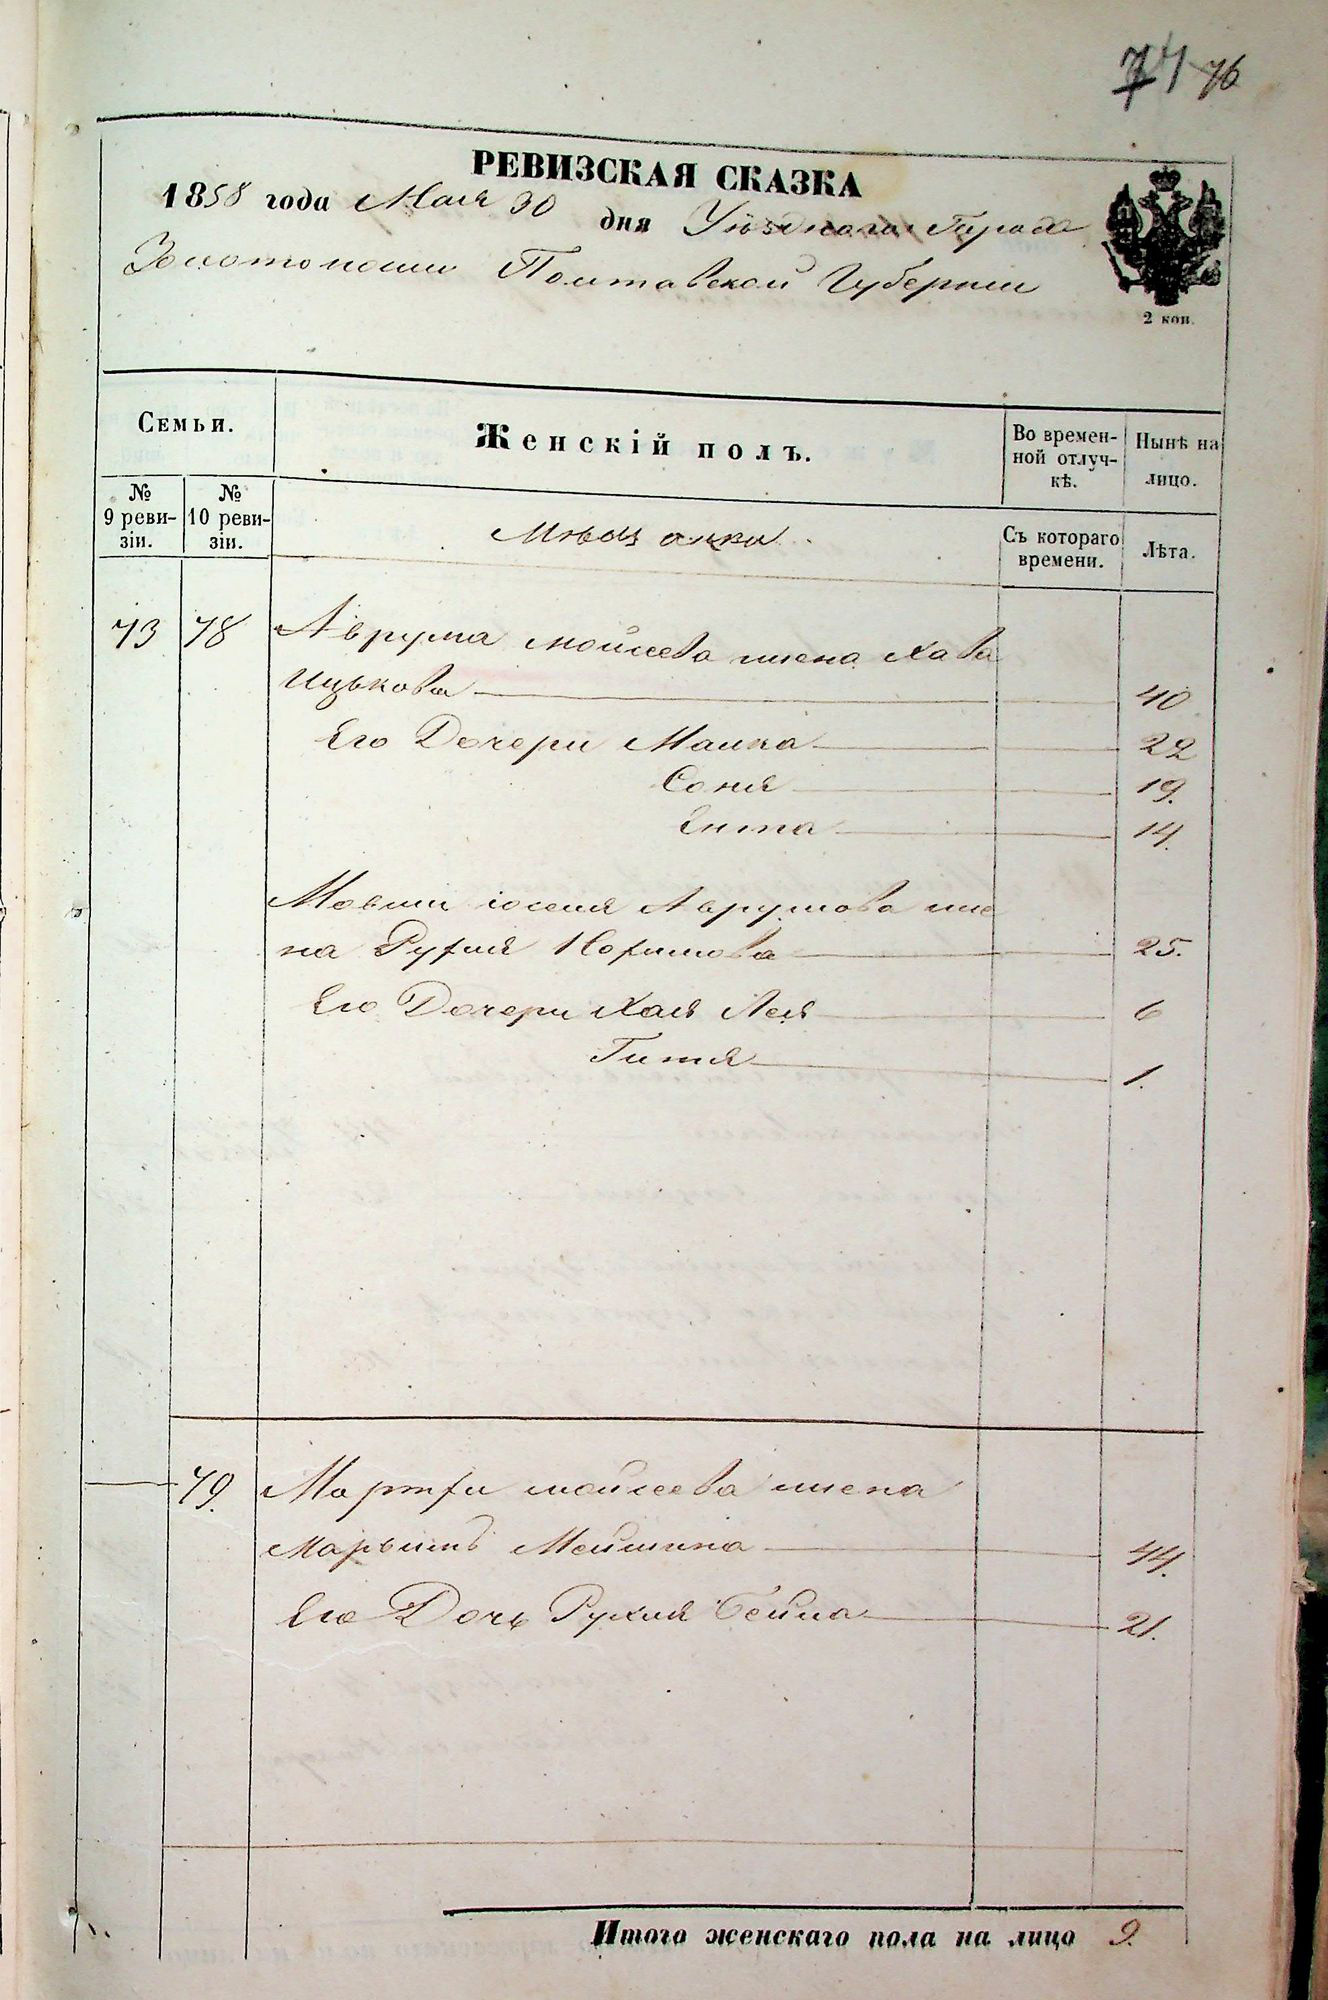 74 76
РЕВИЗСКАЯ СКАЗКА
1858 года Мая 30 дня Уезднаго Города
Золотоноши Полтавской Губернии
2 коп.
Семьи.
Женскій полъ.
Во времен-
ной отлуч-
кѣ.
Нынѣ на
лицо.
№
9 реви-
зіи.
№
10 реви-
зіи.
Мѣщанки
Съ котораго
времени.
Лѣта.
73 78 Аврума Мойсеева жена Хава
Ицькова 40
Его Дочери Малка 22
Соня 19.
Ента 14.
Мовши Іоселя Аврумова же
на Рухля 25.
Его Дочери Хая Лея 6
Гитля 1.
79. Мойсеева жена
44.
Его Дочь Рухля Бейла 21.
Итого женскаго пола на лицо 9.